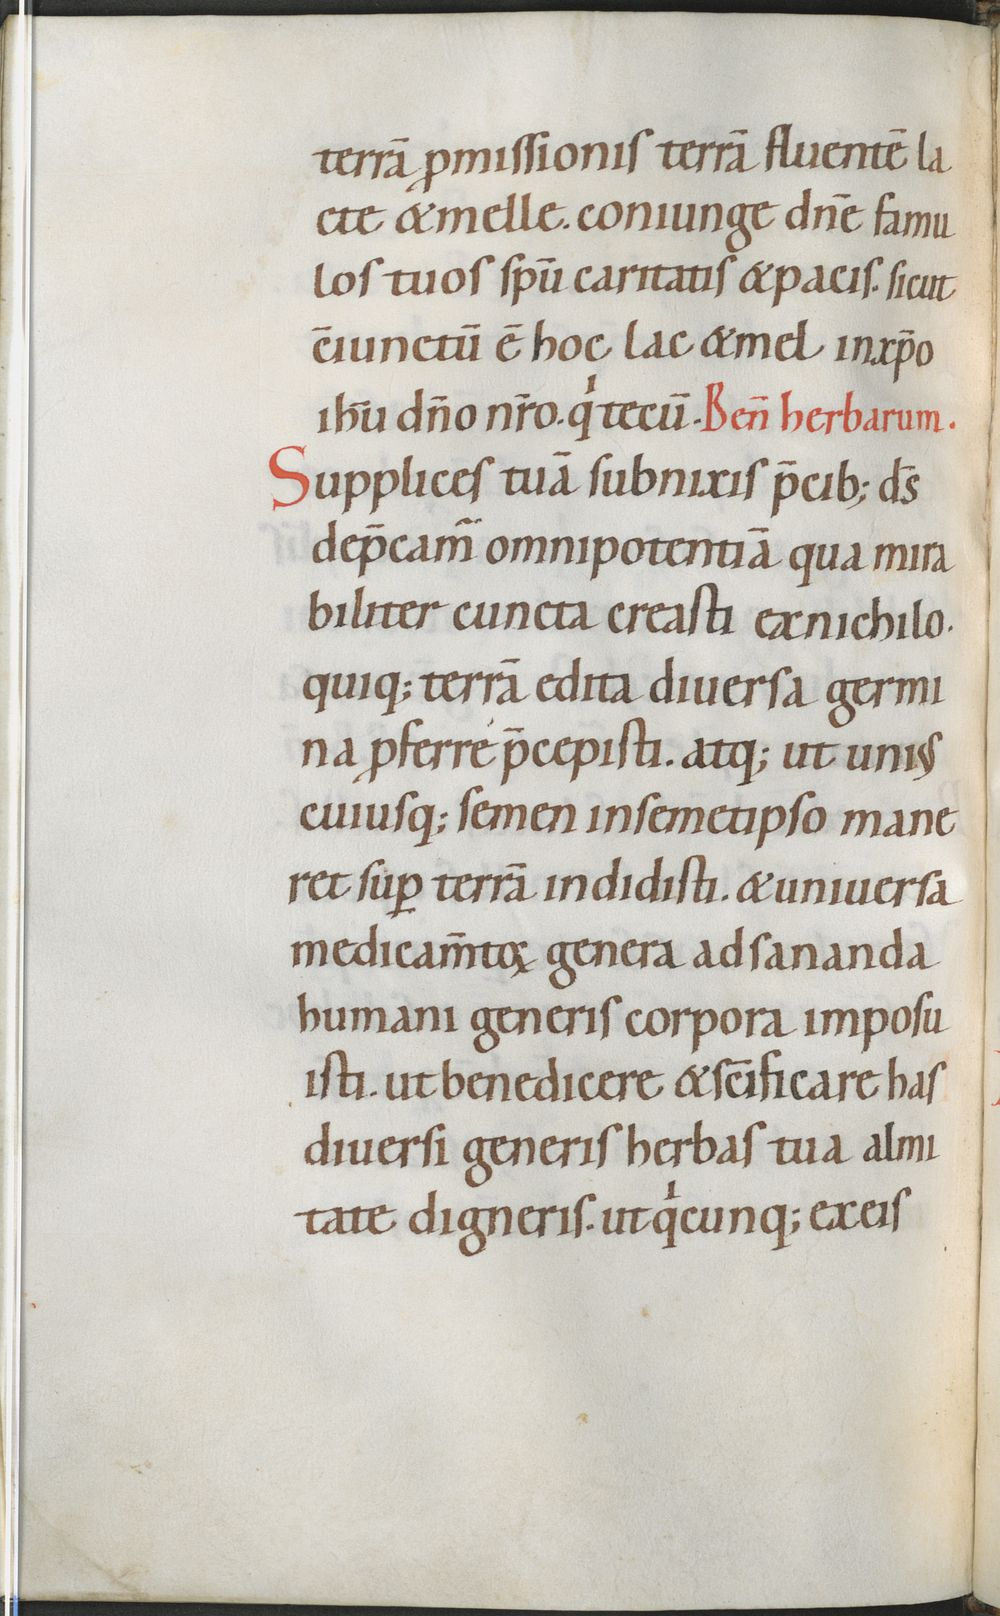 terrā ꝓmissionis terrā fluentē la
cte &melle. coniunge dn̄e famu
los tuos sp̄u caritatis &pacis. sicut
c̄iunctū ē hoc lac &mel inxp̄o
ih̄u dn̄o nr̄o. qͥ tecū. Ben̄ herbarum.
Supplices tuā subnixis p̄cib; d̄s
dep̄cam̄ omnipotentiā qua mira
biliter cuncta creasti exnichilo.
quiq; terrā edita diuersa germi
na ꝓferre p̄cepisti. atq; ut unius
cuiusq; semen insem̄etipso mane
ret suꝑ terrā indidisti. &uniuersa
medicam̄toꝝ genera adsananda
humani generis corpora imposu
isti. ut benedicere &sc̄ificare has
diuersi generis herbas tua almi
tate digneris. ut qͥcunq; exeis